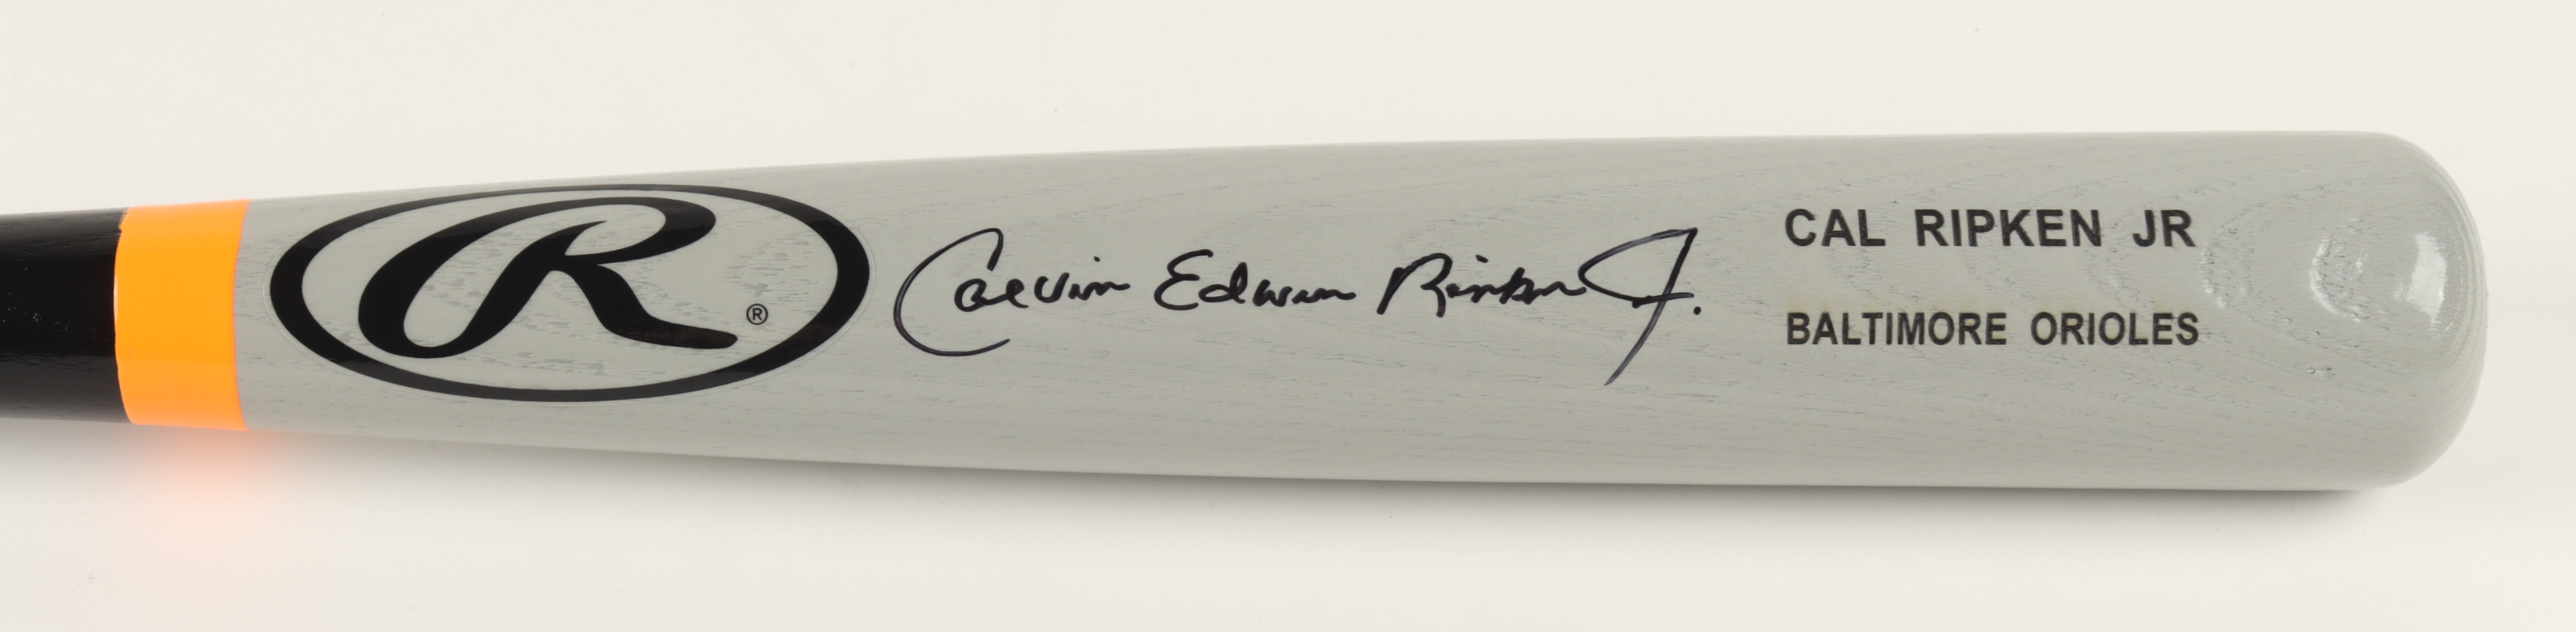 R ®
Calvin Edwin Ripken Jr.
CAL RIPKEN JR
BALTIMORE ORIOLES